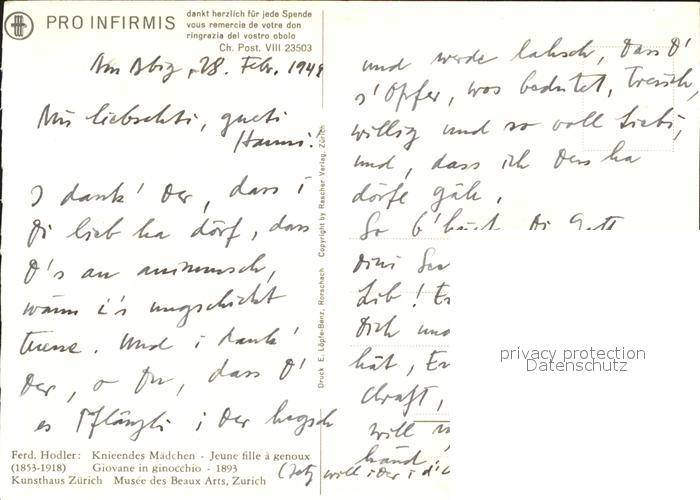 PRO INFIRMIS
dankt herzlich für jede Spende
vous remercie de votre don
ringrazia del vostro obolo
Ch. Post. VIII 23503
Am Abig, 28. Febr. 1949
Mis liebschti, gueti
Hanni!
I dank' Der, dass i
Di lieb ha dörf, dass
D's au animmsch,
wänn i's ungschickt
tuene. Und i dank'
Der, o Du, dass D'
es Pflänzli i der hegsch
und werde lahsch, dass D'
s'Opfer, wos bedütet,
willig und so voll Liebi,
und, dass ich Ders ha
dörfe gäh.
So b'hüet Di Gott
Dini See
Lib! Er
Dich und
hät, Er
Chraft,
will
händ
(Jetz will i der i d'
Copyright by Rascher Verlag, Zürich
Druck E. Löpfe-Benz, Rorschach
privacy protection
Datenschutz
Ferd. Hodler: Knieendes Mädchen - Jeune fille à genoux
(1853-1918) Giovane in ginocchio - 1893
Kunsthaus Zürich Musée des Beaux Arts, Zurich